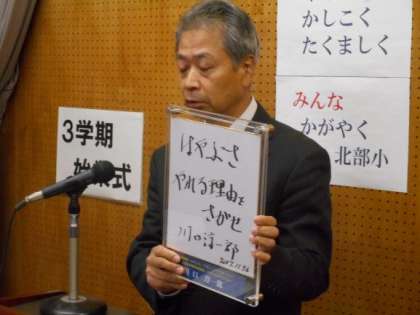 かしこく
たくましく
みんな
かがやく
北部小
3学期
始業式
はやぶさ
やれる理由を
さがせ
川口淳一郎